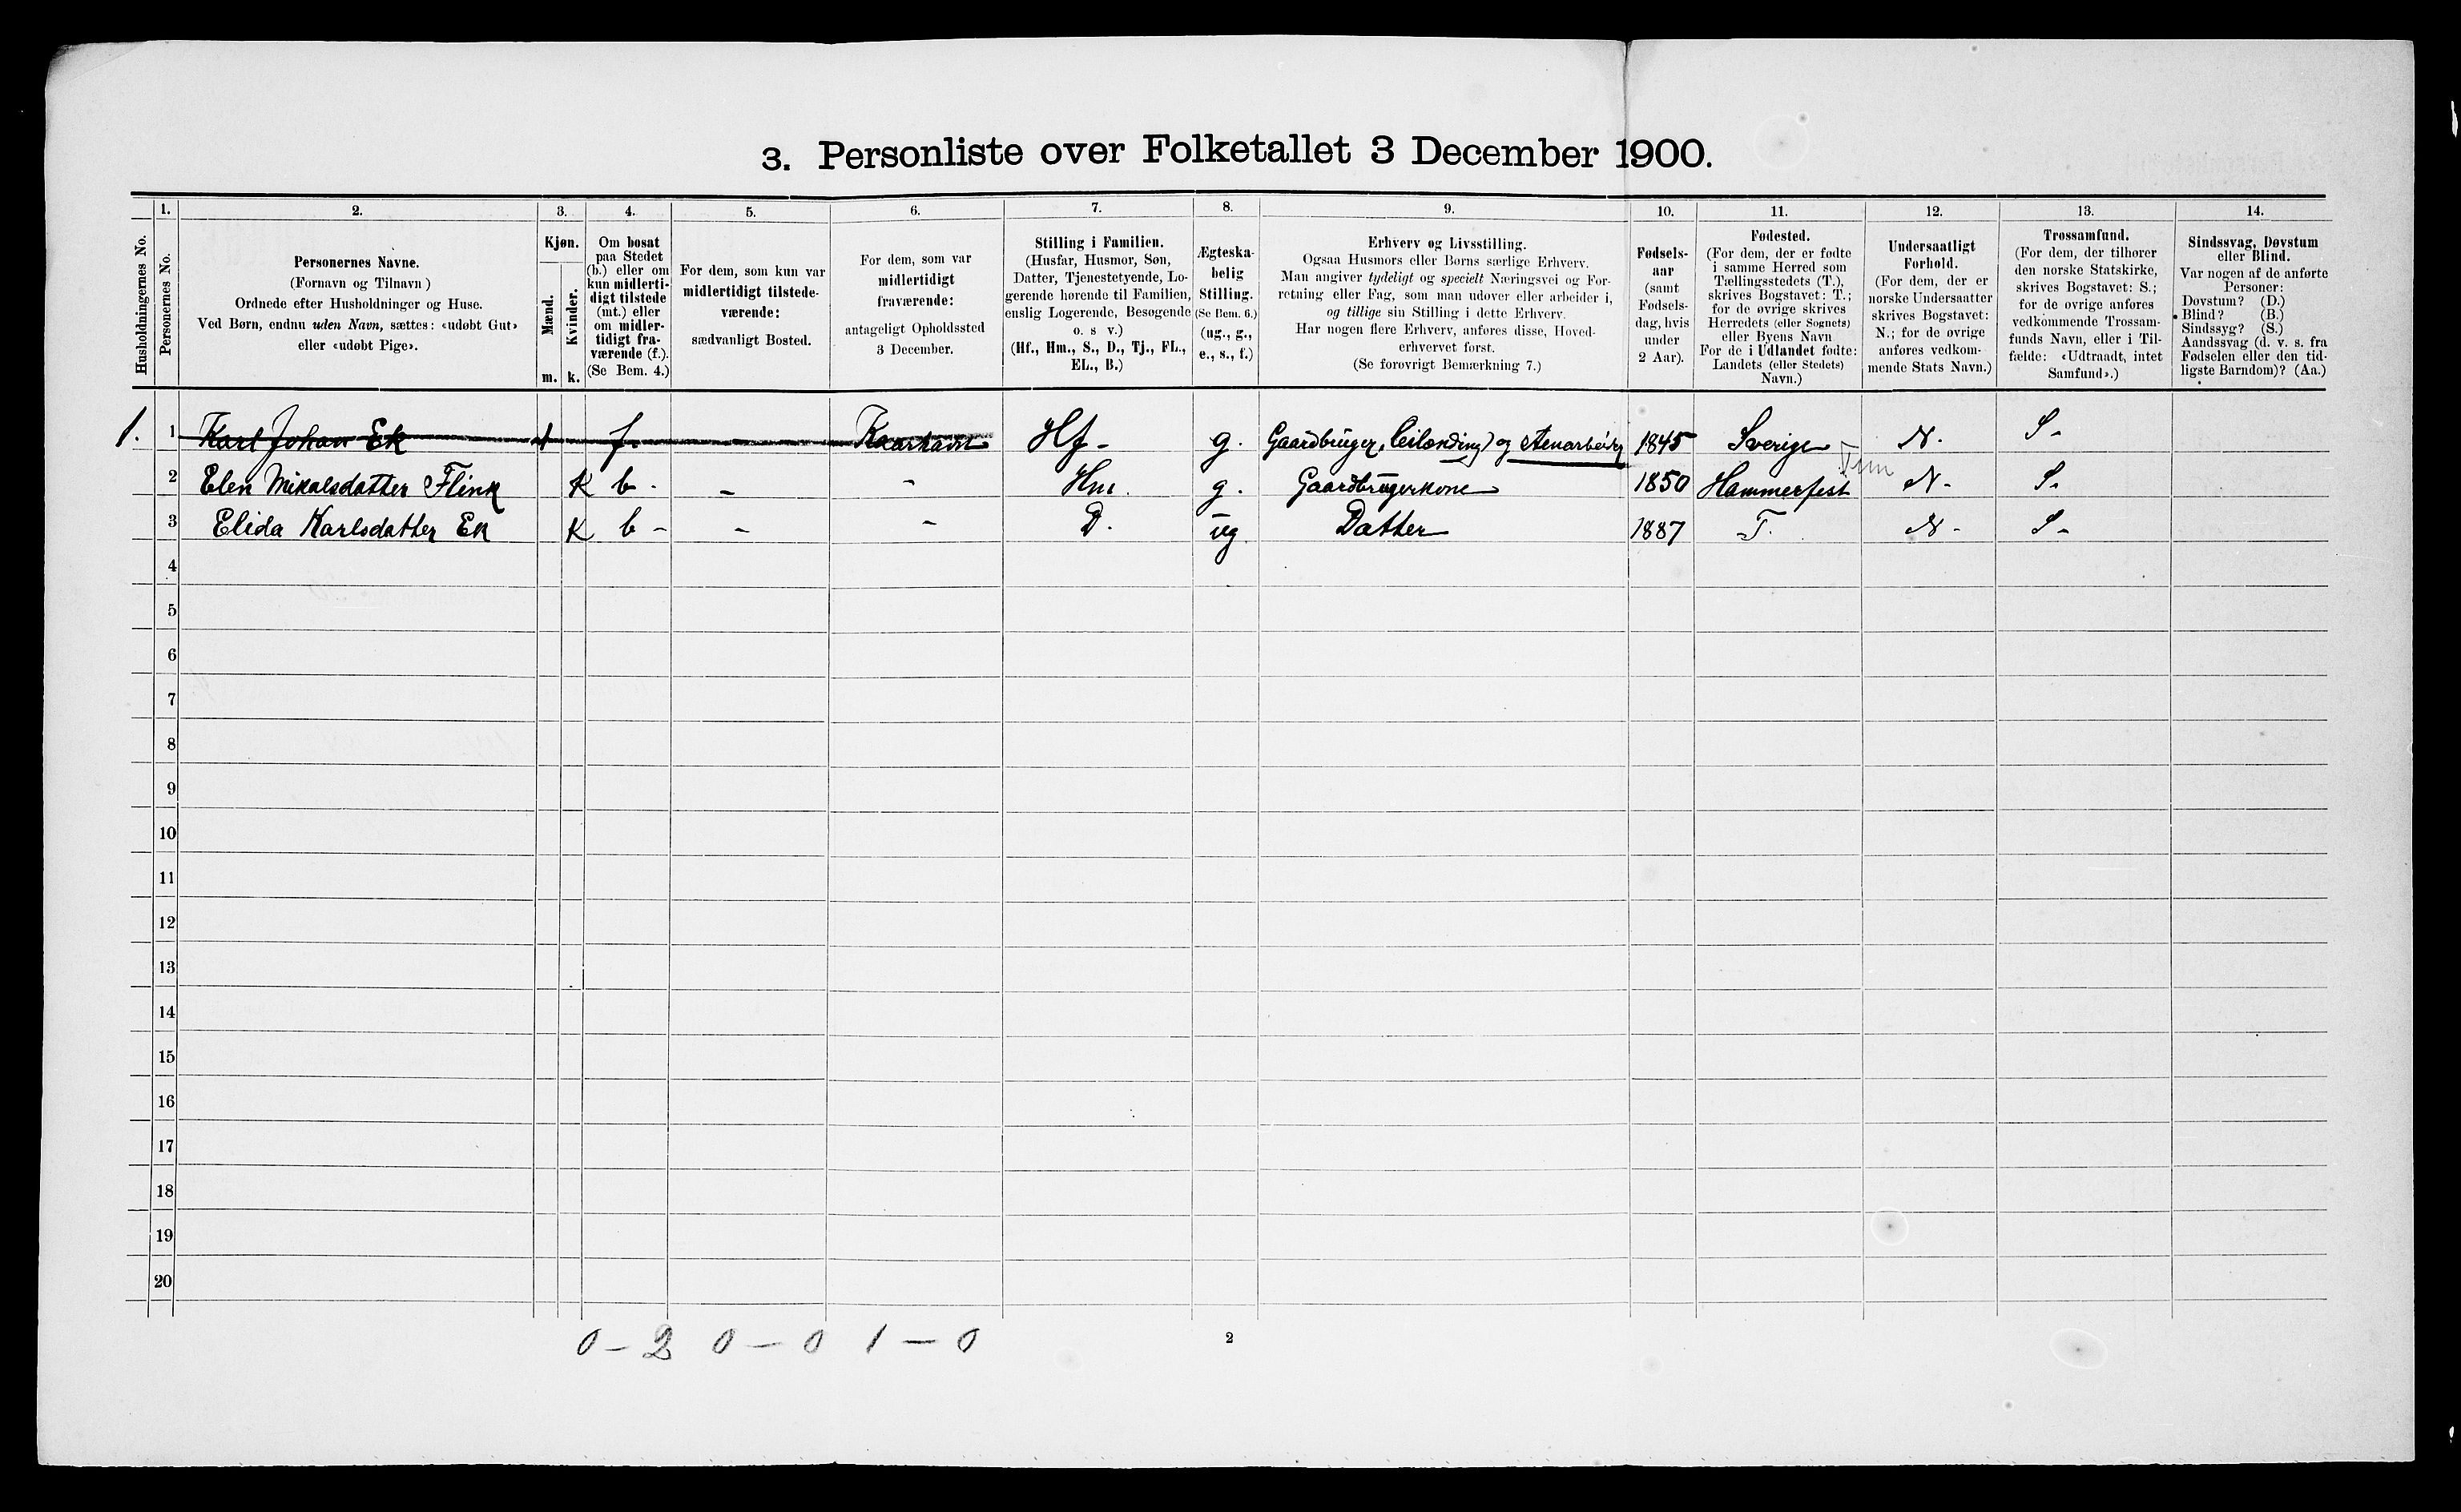 3. Personliste over Folketallet 3 December 1900.
1. 2. 3. 4. 5. 6. 7. 8. 9. 10. 11. 12. 13. 14.
Husholdningernes No.
Personernes No.
Personernes Navne.
(Fornavn og Tilnavn)
Ordnede efter Husholdninger og Huse.
Ved Børn, endnu uden Navn, sættes: «udøbt Gut»
eller «udøbt Pige».
Kjøn.
Mænd.
Kvinder.
m. k.
Om bosat
paa Stedet
(b.) eller om
kun midlerti-
digt tilstede
(mt.) eller
om midler-
tidigt fra-
værende (f.).
(Se Bem. 4.)
For dem, som kun var
midlertidigt tilstede-
værende:
sædvanligt Bosted.
For dem, som var
midlertidigt
fraværende:
antageligt Opholdssted
3 December.
Stilling i Familien.
(Husfar, Husmor, Søn,
Datter, Tjenestetyende, Lo-
gerende hørende til Familien,
enslig Logerende, Besøgende
o. s v.)
(Hf., Hm., S., D., Tj., FL.,
EL., B.)
Ægteska-
belig
Stilling.
(Se Bem. 6.)
(ug., g.,
e., s., f.)
Erhverv og Livsstilling.
Ogsaa Husmors eller Børns særlige Erhverv.
Man angiver tydeligt og specielt Næringsvei og For-
retning eller Fag, som man udøver eller arbeider i,
og tillige sin Stilling i dette Erhverv.
Har nogen flere Erhverv, anføres disse, Hoved-
erhvervet først.
(Se forøvrigt Bemærkning 7.)
Fødsels-
aar
(samt
Fødsels-
dag, hvis
under
2 Aar).
Fødested.
(For dem, der er fødte
i samme Herred som
Tællingsstedets (T.),
skrives Bogstavet: T.;
for de øvrige skrives
Herredets (eller Sognets)
eller Byens Navn
For de i Udlandet fødte:
Landets (eller Stedets)
Navn.)
Undersaatligt
Forhold.
(For dem, der er
norske Undersaatter
skrives Bogstavet:
N.; for de øvrige
anføres vedkom-
mende Stats Navn.)
Trossamfund.
(For dem, der tilhører
den norske Statskirke,
skrives Bogstavet: S.;
for de øvrige anføres
vedkommende Trossam-
funds Navn, eller i Til-
fælde: «Udtraadt, intet
Samfund».)
Sindssvag, Døvstum
eller Blind.
Var nogen af de anførte
Personer:
Døvstum? (D.)
Blind? (B.)
Sindssyg? (S.)
Aandssvag (d. v. s. fra
Fødselen eller den tid-
ligste Barndom)? (Aa.)
1. 1 Karl Johan Ek f. - Hf - g. Gaardbruger, (leilænding) og 1845 Sverige N. S.
2 Elen Mikalsdatter Flink K b. - - Hm. g. Gaardbrugerkone 1850 Hammerfest N - S.
3 Elida Karlsdatter Ek K b - - - D. ug. Datter 1887 T. N - S -
4
5
6
7
8
9
10
11
12
13
14
15
16
17
18
19
20
0 - 2 0 - 0 1 - 0
2